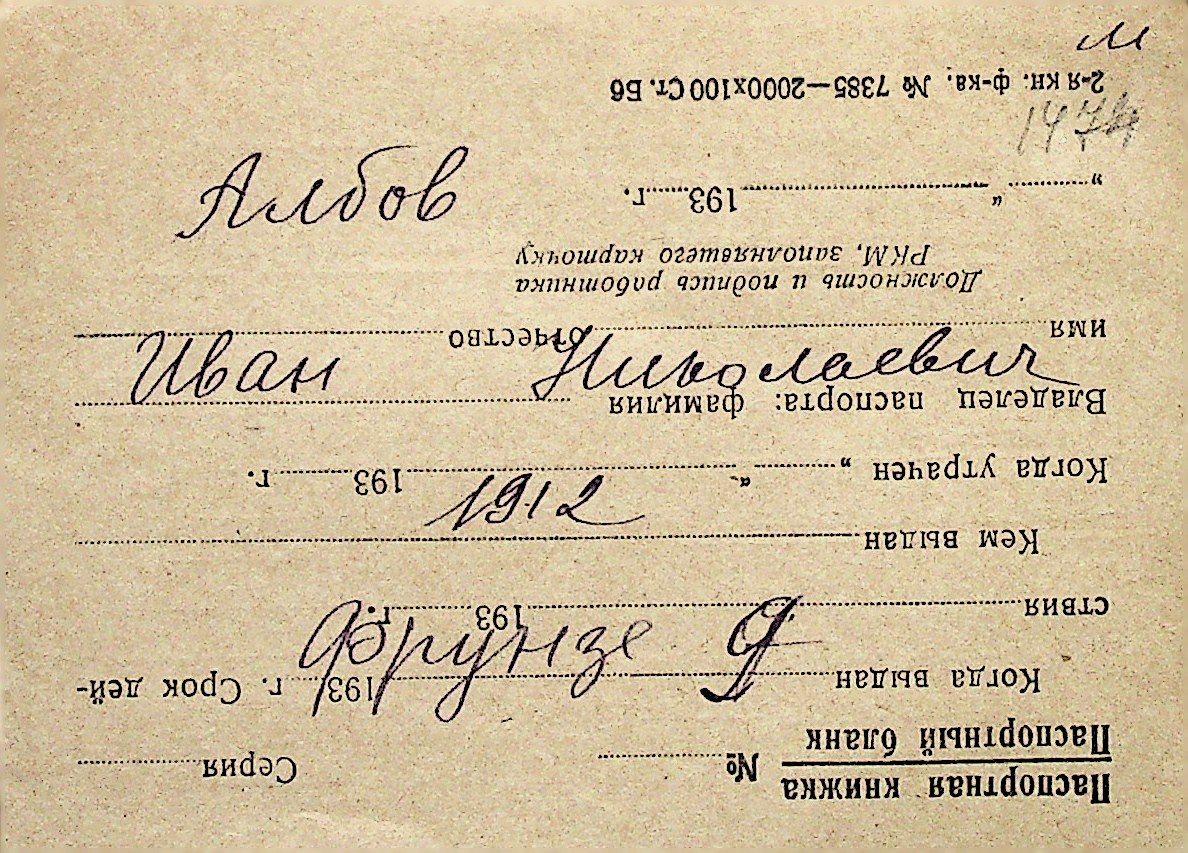 м
Албов
Иван Николаевич
1912
Фрунзе 9
Паспортная книжка
Паспортный бланк № Серия
Когда выдан 193 г. Срок дей-
ствия 193 г.
Кем выдан
Когда утрачен „ “ 193 г.
Владелец паспорта: фамилия
имя отчество
Должность и подпись работника
РКМ, заполнявшего карточку
„ “ 193 г.
2-я кн. ф-ка. № 7385—2000х100 Ст. Б6